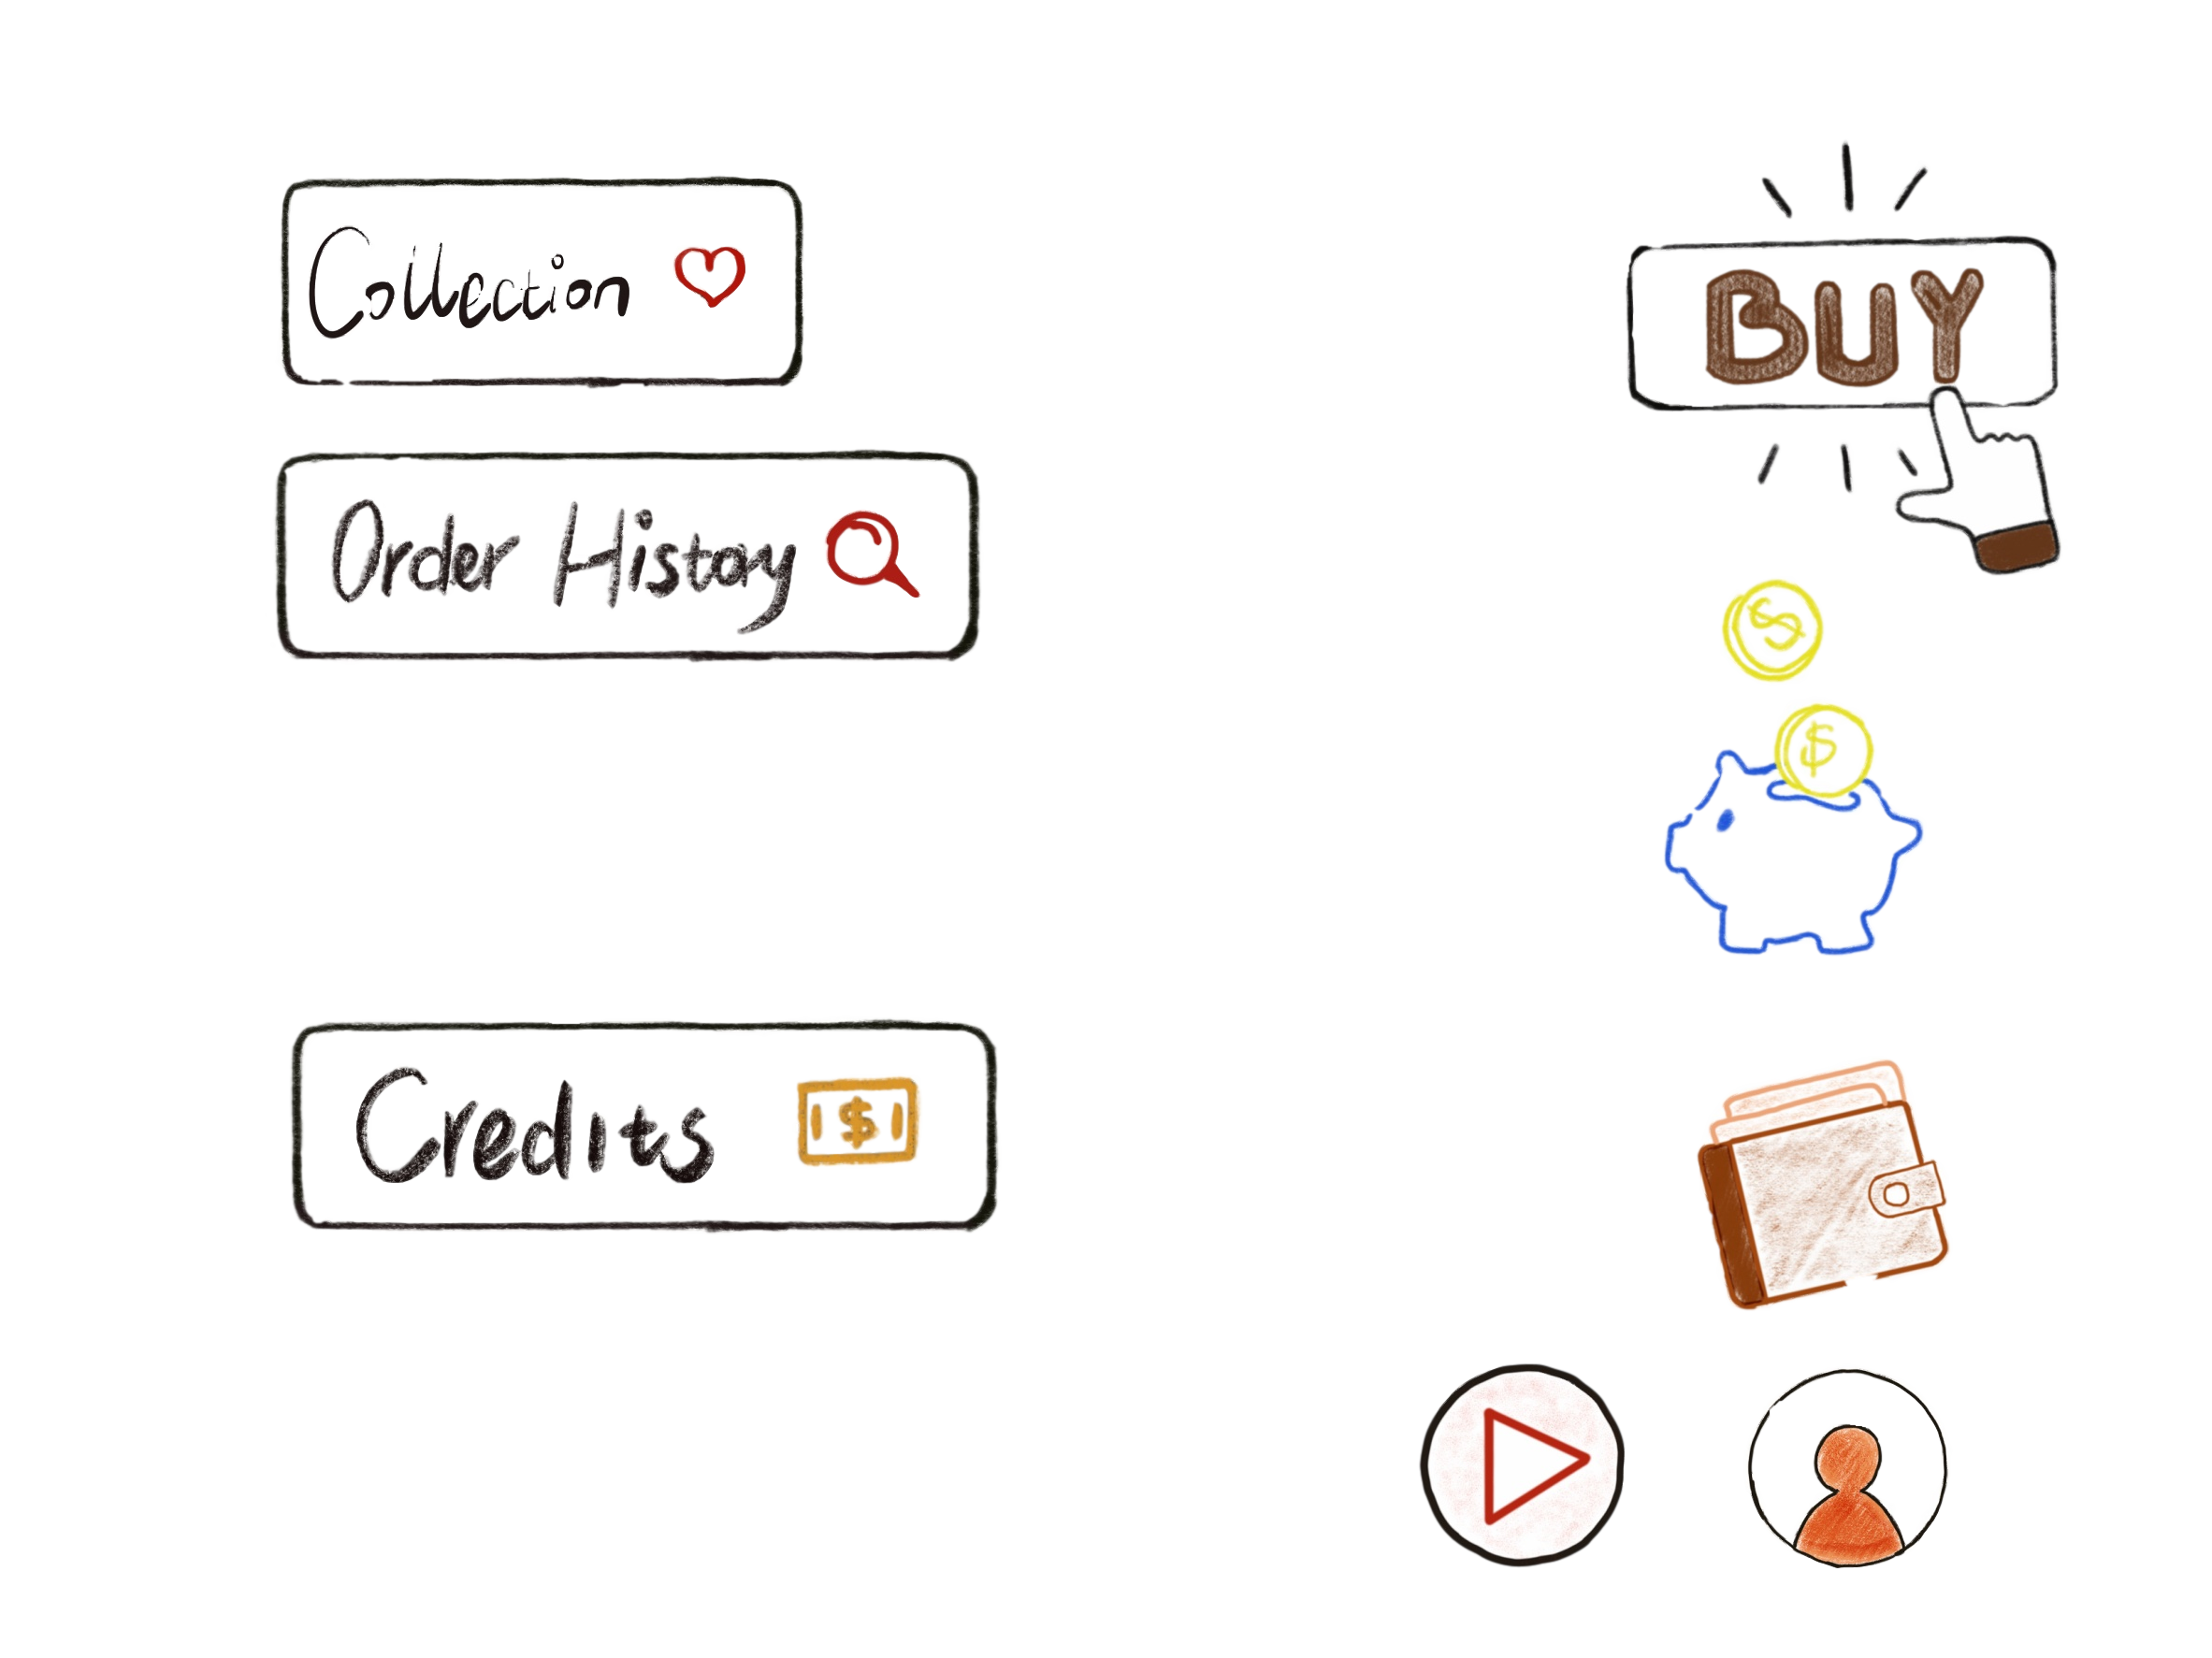 Collection
BUY
Order History
$
$
Credits $